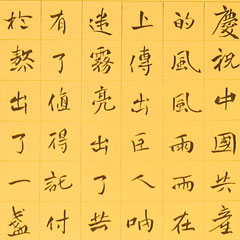 慶祝中國共產
的風風雨雨在
上傳出巨人吶
迷霧亮出了共
有了值得託付
於熬出了一盞